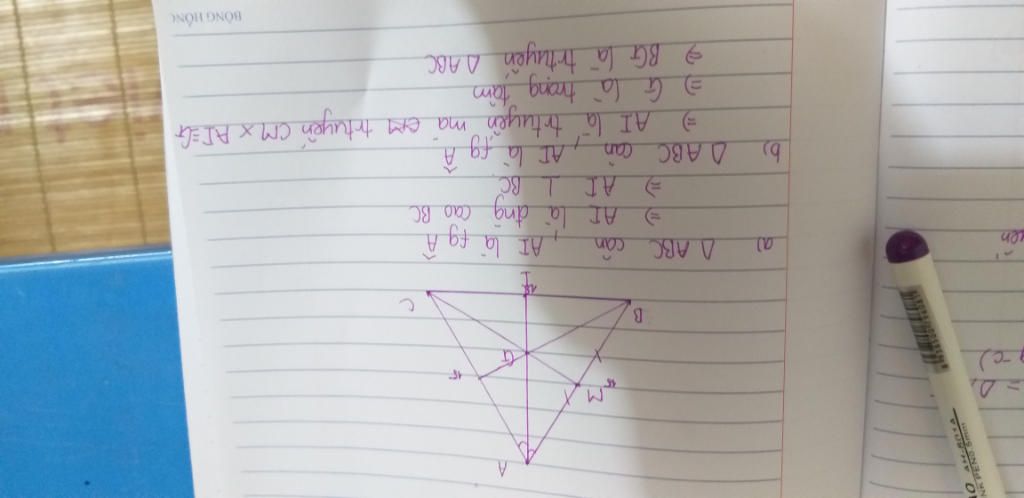 A
M
G
B
I
C
a) Δ ABC cân, AI là fg Â
⇒ AI là đng cao BC
⇒ AI ⊥ BC
b) Δ ABC cân, AI là fg Â
⇒ AI là trtuyến mà trtuyến CM × AI=G
⇒ G là trọng tâm
⇒ BG là trtuyến Δ ABC
BÔNG HỒNG